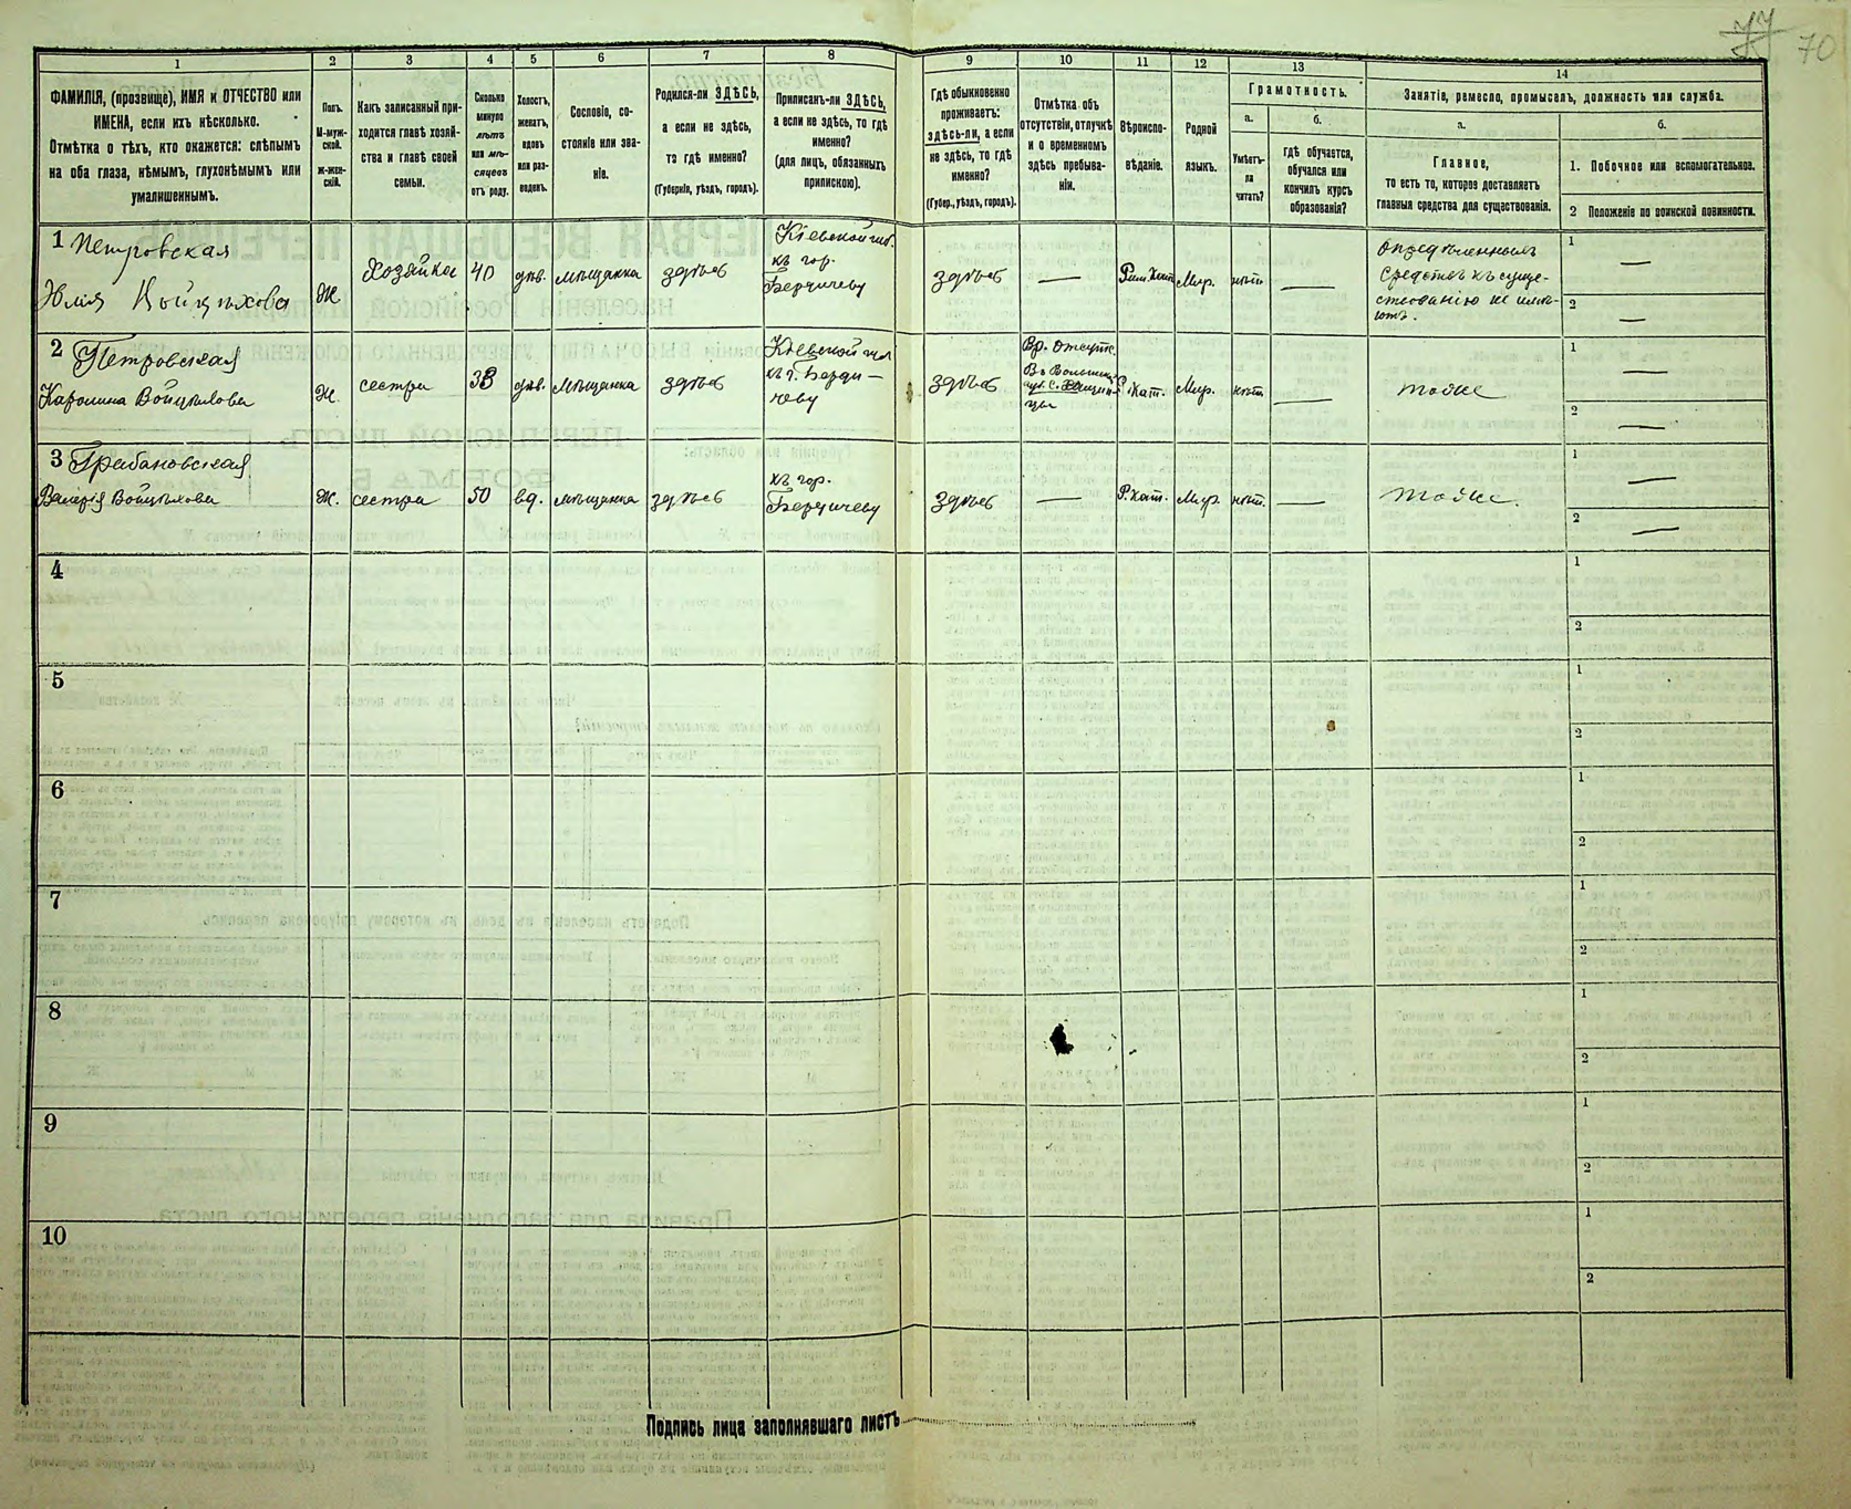 77 70
1
2
3
4
5
6
7
8
9
10
11
12
13
14
ФАМИЛІЯ, (прозвище), ИМЯ и ОТЧЕСТВО или
ИМЕНА, если ихъ нѣсколько.
Отмѣтка о тѣхъ, кто окажется: слѣпымъ
на оба глаза, нѣмымъ, глухонѣмымъ или
умалишеннымъ.
Полъ.
М-муж-
ской.
Ж-жен-
скій.
Какъ записанный при-
ходится главѣ хозяй-
ства и главѣ своей
семьи.
Сколько
минуло
лѣтъ
или мѣ-
сяцевъ
отъ роду.
Холостъ,
женатъ,
вдовъ
или раз-
веденъ.
Сословіе, со-
стояніе или зва-
ніе.
Родился-ли ЗДѢСЬ,
а если не здѣсь,
то гдѣ именно?
(Губернія, уѣздъ, городъ).
Приписанъ-ли ЗДѢСЬ,
а если не здѣсь, то гдѣ
именно?
(для лицъ, обязанныхъ
припискою).
Гдѣ обыкновенно
проживаетъ:
здѣсь-ли, а если
не здѣсь, то гдѣ
именно?
(Губер., уѣздъ, городъ).
Отмѣтка объ
отсутствіи, отлучкѣ
и о временномъ
здѣсь пребыва-
ніи.
Вѣроиспо-
вѣданіе.
Родной
языкъ.
Грамотность.
а.
Умѣетъ-
ли
читать?
б.
гдѣ обучается,
обучался или
кончилъ курсъ
образованія?
Занятіе, ремесло, промыселъ, должность или служба.
а.
Главное,
то есть то, которое доставляетъ
главныя средства для существованія.
б.
1. Побочное или вспомогательное.
2 Положеніе по воинской повинности.
1 Петровская
Юлія Войцѣхова
Ж
Хозяйка
40
дѣв.
мѣщанка
здѣсь
Кіевской губ.
къ гор.
Бердичеву
здѣсь
—
Рим. Кат.
Мир.
нѣтъ
—
Опредѣленныхъ
средствъ къ суще-
ствованію не имѣ-
ютъ.
1 —
2 —
2 Петровская
Каролина Войцѣхова
Ж.
сестра
38
дѣв.
Мѣщанка
здѣсь
Кіевской губ
къ г. Берди—
чеву
здѣсь
Вр. отсутс.
Р. Кат.
Мир.
нѣтъ
—
тоже
1 —
2 —
3 Грабановская
Валерія Войцѣхова
Ж.
сестра
50
вд.
мѣщанка
здѣсь
къ гор.
Бердичеву
здѣсь
—
Р. Кат.
Мир.
нѣт.
—
тоже.
1 —
2 —
4
1
2
5
1
2
6
1
2
7
1
2
8
1
2
9
1
2
10
1
2
Подпись лица заполнявшаго листъ